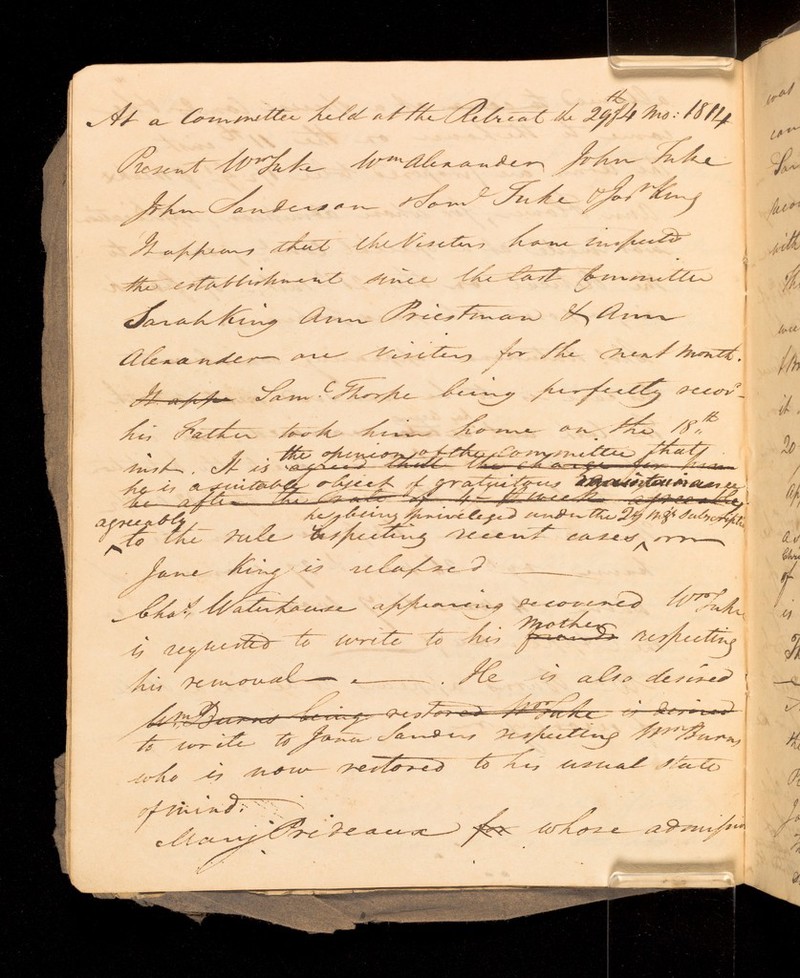 At a Committee held at the Retreat the 29th of 4 mo: 1814
Present Wm Tuke Wm Alexander John Tuke
John Sanderson & Saml Tuke & Jos King
It appears that the Visiters have inspected
the establishment since the last Committee
Sarah King Ann Priestman & Ann
Alexander are visiters for the next month.
It appe Saml Thorpe being perfectly recovd
his Father took him home on the 18th
inst. It is the opinion of the Committee that
agreed that the charge for him
he is a suitable object of gratuitous maintenance
be after the rate of 4 week agreeably
agreeably he being priveleged under the
to the rule respecting recent cases
Jane King is relapsed
Chas Waterhouse appearing recovered Wm Tuke
is requested to write to his friends mother respecting
his removal — . He is also desired
Wm Burns being restored Wm Tuke is desired
to write to Sanders respecting Wm Burns
who is now restored to his usual state
of mind.
Mary Prideaux for whose admission